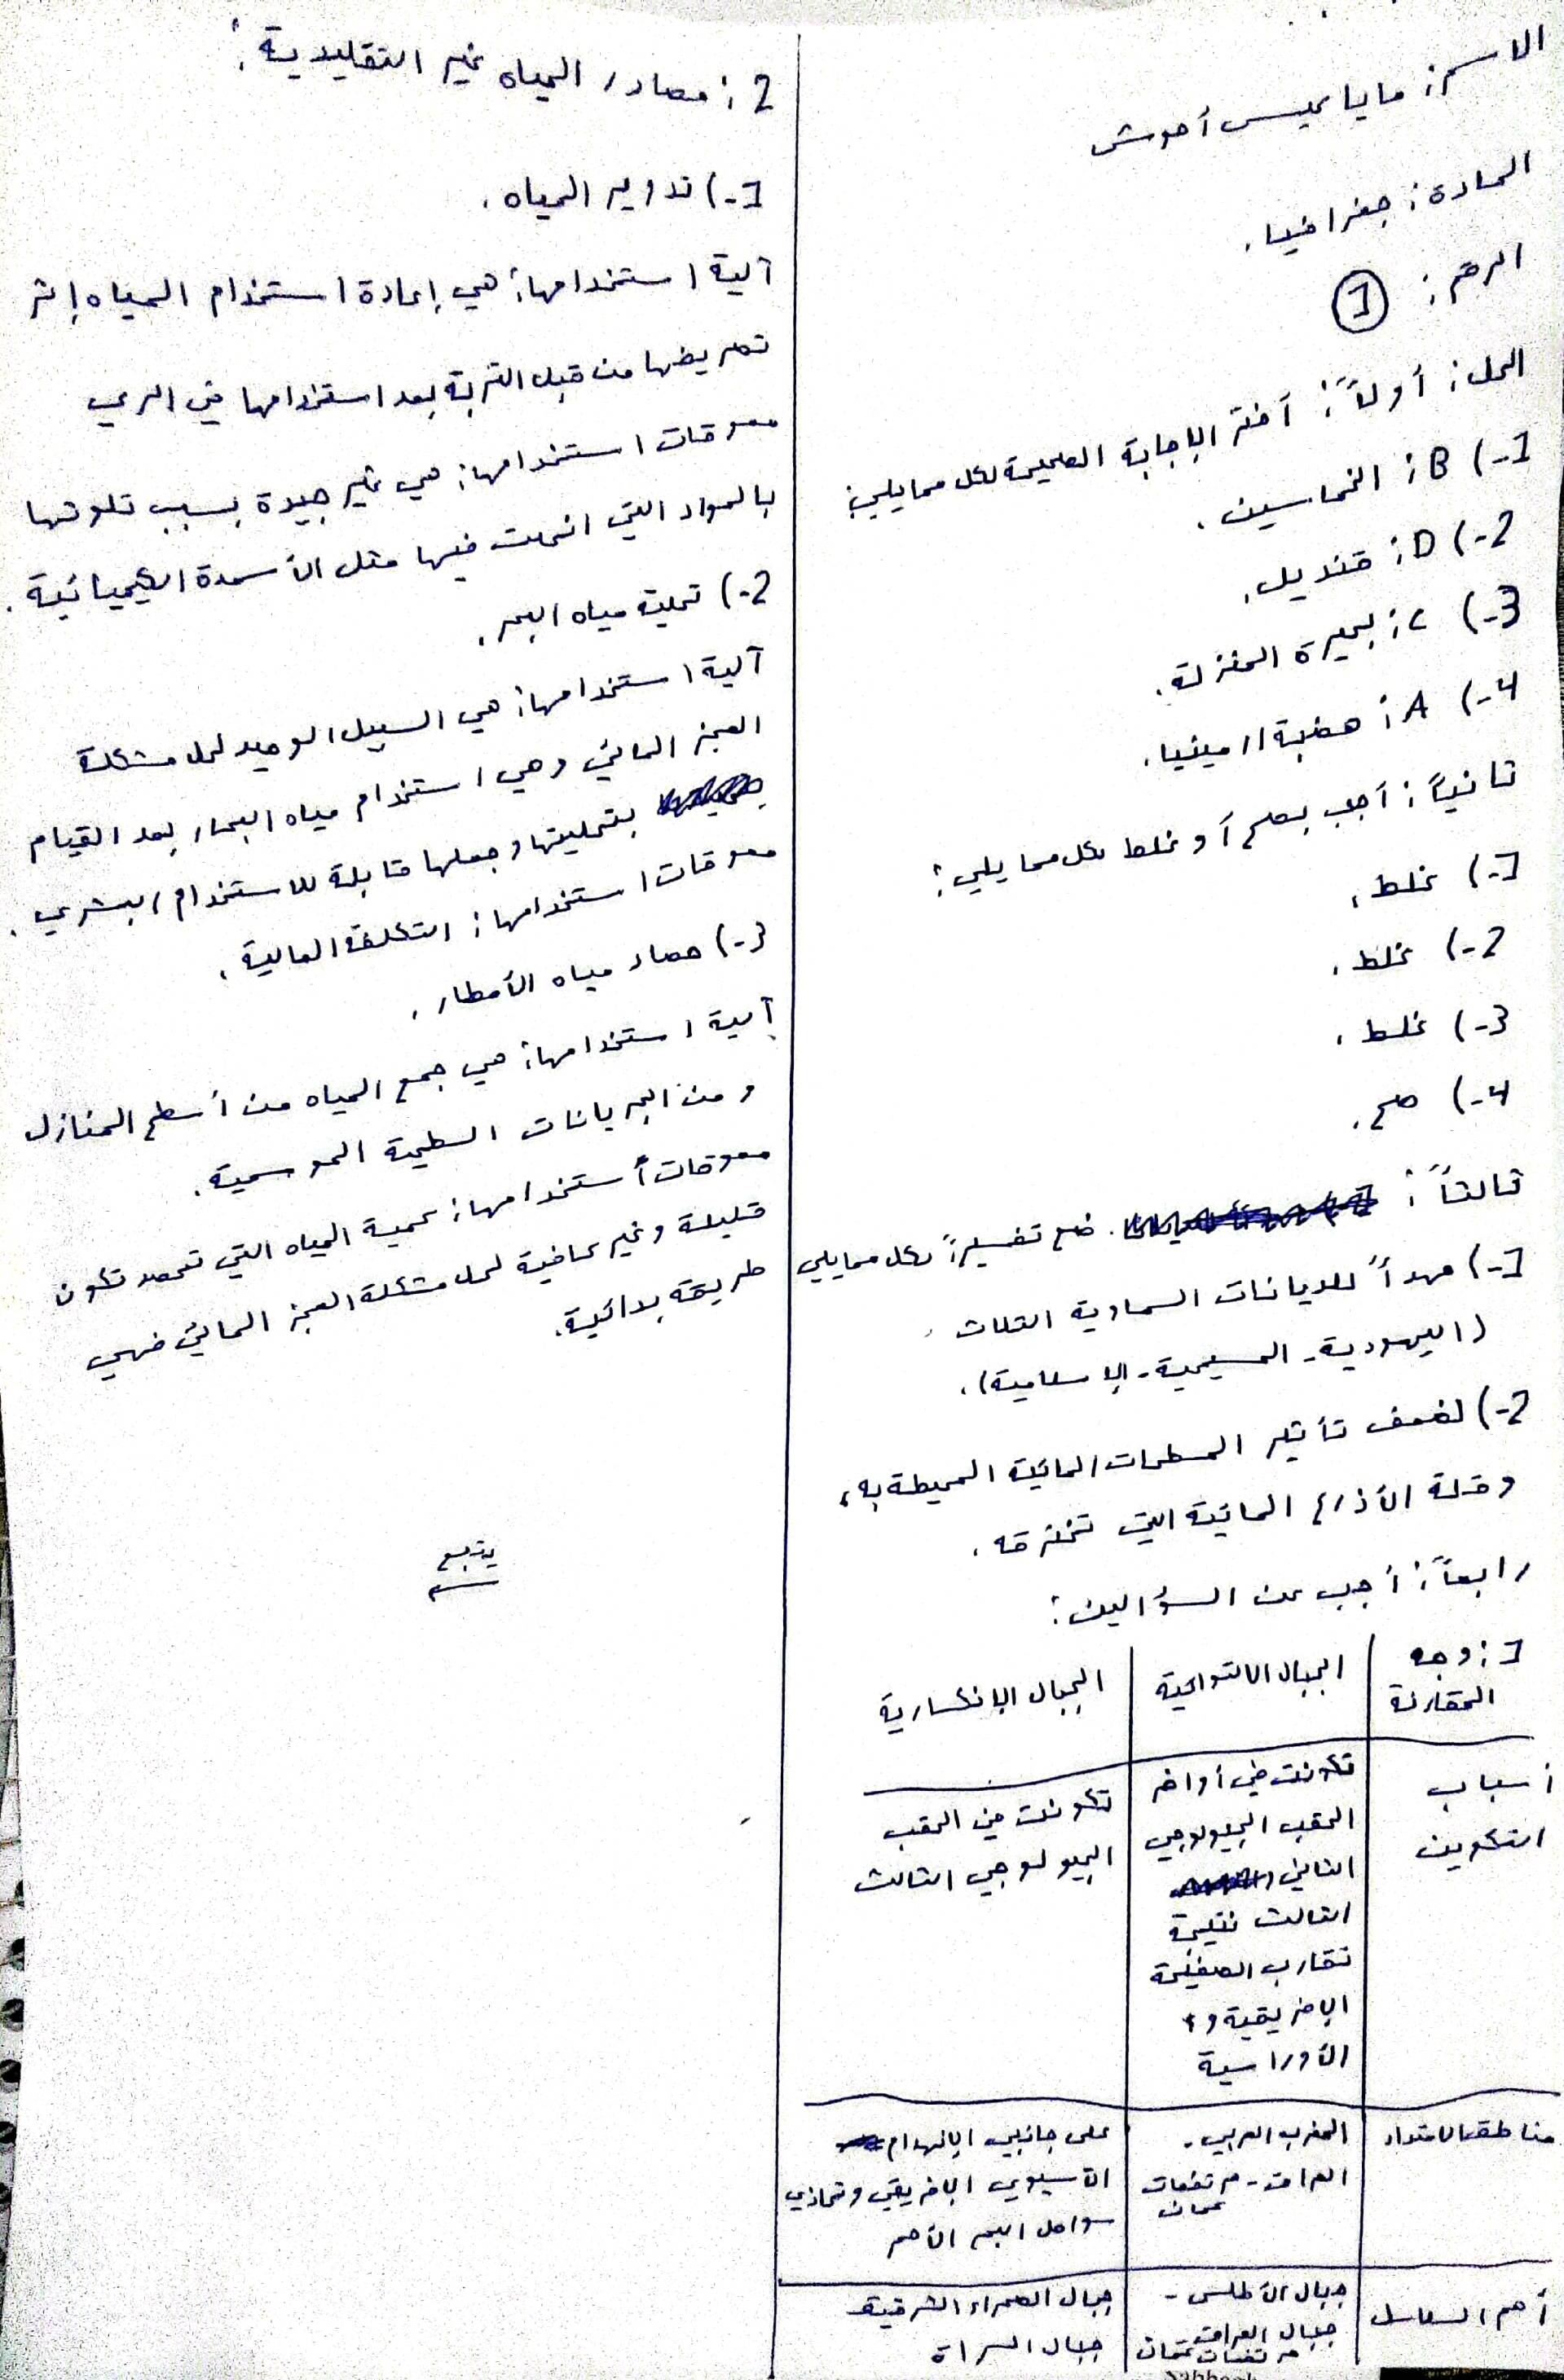 الاسم: مايا عيسى أحوش
المادة: جغرافيا.
الرقم: 1
الحل: أولاً: أختر الإجابة الصحيحة لكل مما يلي:
1-) B: الخماسين.
2-) D: قنديل.
3-) C: بحيرة المنزلة.
4-) A: هضبة ارمينيا.
ثانياً: أجب بصح أو غلط لكل مما يلي:
1-) غلط.
2-) غلط.
3-) غلط.
4-) صح.
ثالثاً: ضع تفسيراً لكل مما يلي
1-) مهداً للديانات السماوية الثلاث
(اليهودية - المسيحية - الإسلامية).
2-) لضعف تأثير المسطحات المائية المحيطة به،
وقلة الأذرع المائية التي تخترقه.
رابعاً: أجب عن السؤالين:
1: وجه المقارنة
الجبال الالتوائية
الجبال الإنكسارية
أسباب
التكوين
تكونت في أواخر
الحقب الجيولوجي
الثاني و
الثالث نتيجة
تقارب الصفيحة
الإفريقية و
الأوراسية
تكونت في الحقب
الجيولوجي الثالث
مناطق الامتداد
المغرب العربي -
العراق - مرتفعات
عمان
على جانبي الإنهدام
الآسيوي الإفريقي وتحاذي
سواحل البحر الأحمر
أهم السلاسل
جبال الأطلس -
جبال العراق
مرتفعات عمان
جبال الصحراء الشرقية
جبال السراة
2: مصادر المياه غير التقليدية:
1-) تدوير المياه.
آلية استخدامها: هي إعادة استخدام المياه إثر
تصريفها من قبل التربة بعد استخدامها في الري
معوقات استخدامها: هي غير جيدة بسبب تلوثها
بالمواد التي انحلت فيها مثل الأسمدة الكيميائية.
2-) تحلية مياه البحر.
آلية استخدامها: هي السبيل الوحيد لحل مشكلة
العجز المائي وهي استخدام مياه البحار بعد القيام
بتحليتها وجعلها قابلة للاستخدام البشري.
معوقات استخدامها: التكلفة المالية.
3-) حصاد مياه الأمطار.
آلية استخدامها: هي جمع المياه من أسطح المنازل
ومن الجريانات السطحية الموسمية.
معوقات أستخدامها: كمية المياه التي تحصد تكون
قليلة وغير كافية لحل مشكلة العجز المائي فهي
طريقة بدائية.
يتبع